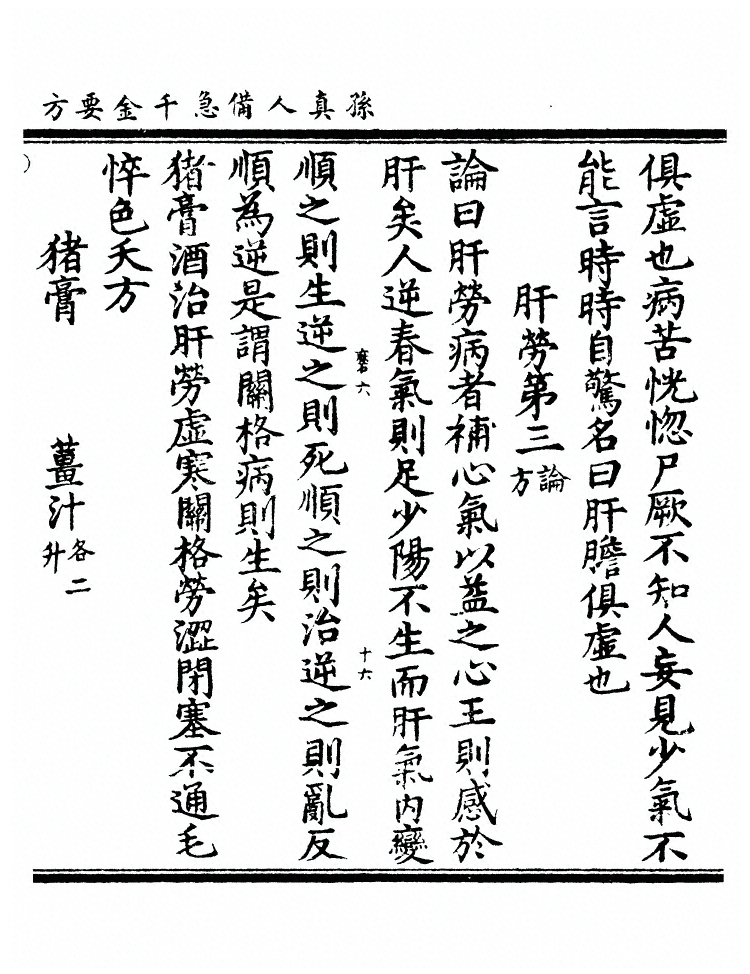 孫真人備急千金要方
俱虛也病苦恍惚尸厥不知人妄見少氣不
能言時時自驚名曰肝膽俱虛也
肝勞第三論方
論曰肝勞病者補心氣以益之心王則感於
肝矣人逆春氣則足少陽不生而肝氣内變
順之則生逆之則死順之則治逆之則亂反
順為逆是謂關格病則生矣
猪膏酒治肝勞虛寒關格勞澀閉塞不通毛
悴色夭方
猪膏 薑汁各二升
十六